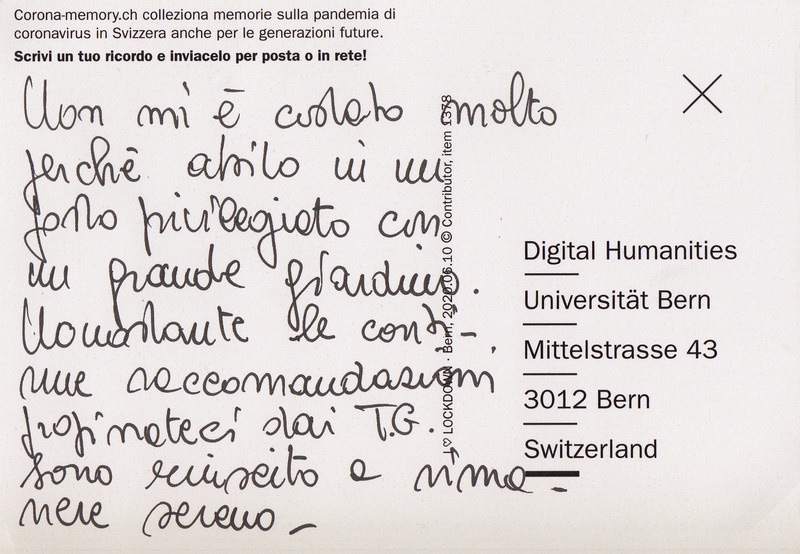 Corona-memory.ch colleziona memorie sulla pandemia di
coronavirus in Svizzera anche per le generazioni future.
Scrivi un tuo ricordo e inviacelo per posta o in rete!
Non mi è costato molto
perché abito in un
posto privilegiato con
un grande giardino.
Nonostante le conti-
nue raccomandazioni
propinateci dai T.G.
sono riuscito a rima-
nere sereno –
I ♡ LOCKDOWN · Bern, 2020.06.10 © Contributor, item 1378
Digital Humanities
Universität Bern
Mittelstrasse 43
3012 Bern
Switzerland